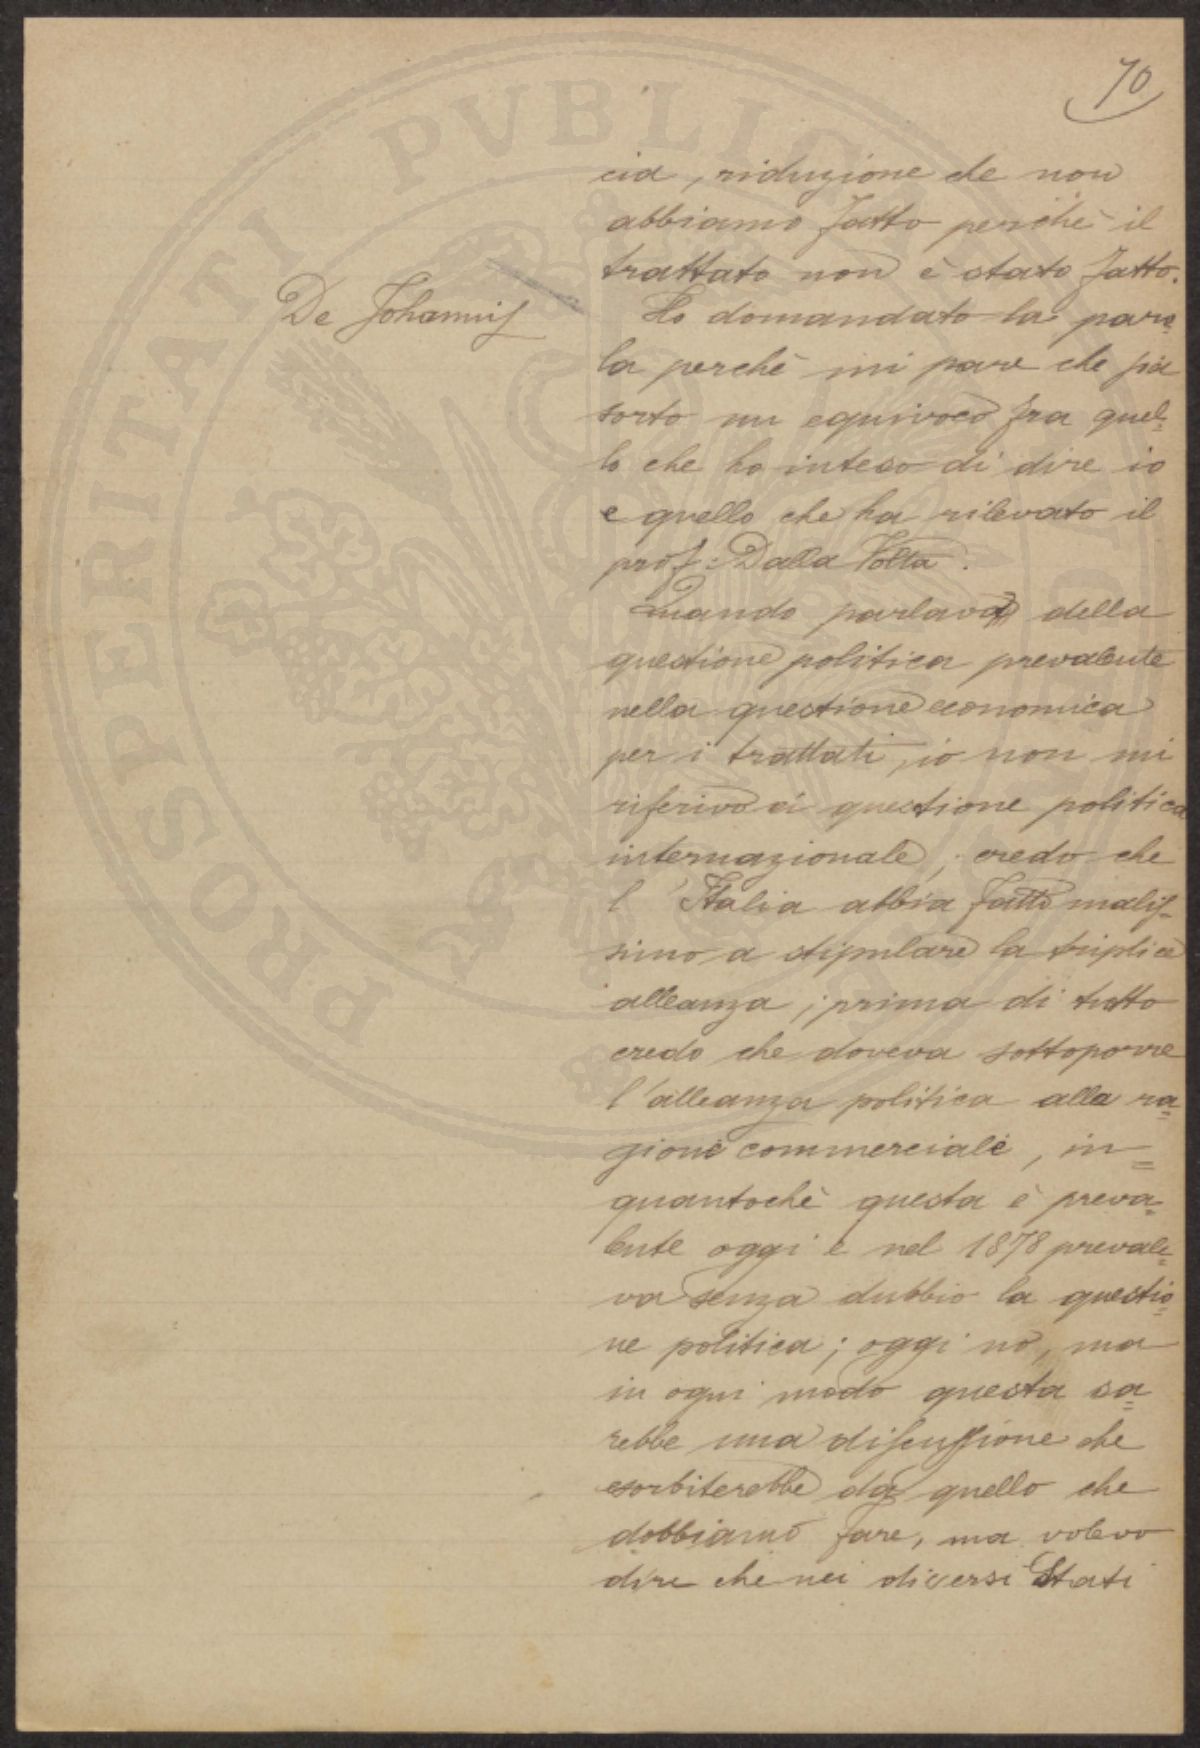 70
cia, riduzione che non
abbiamo fatto perchè il
trattato non è stato fatto.
De Johannis
Ho domandato la paro=
la perchè mi pare che sia
sorto un equivoco fra quel=
lo che ho inteso di dire io
e quello che ha rilevato il
prof: Dalla Volta.
Quando parlava della
questione politica prevalente
nella questione economica
per i trattati, io non mi
riferivo a questione politica
internazionale; credo che
l'Italia abbia fatto malis=
simo a stipulare la triplice
alleanza; prima di tutto
credo che doveva sottoporre
l'alleanza politica alla ra=
gione commerciale, in=
quantochè questa è preva=
lente oggi e nel 1878 prevale=
va senza dubbio la questio=
ne politica; oggi no, ma
in ogni modo questa sa=
rebbe una discussione che
esorbiterebbe da quello che
dobbiamo fare, ma volevo
dire che nei diversi Stati
PROSPERITATI PVBLIC